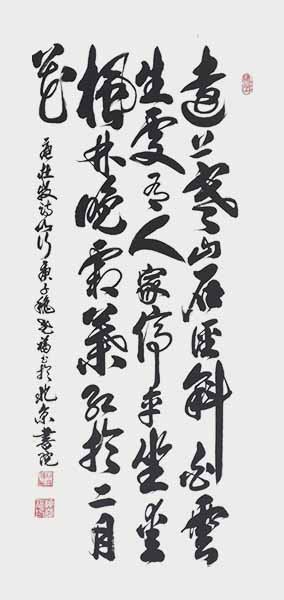 遠上寒山石徑斜白雲
生處有人家停車坐愛
楓林晚霜葉紅於二月
花
杜牧詩山行庚子於北京書院